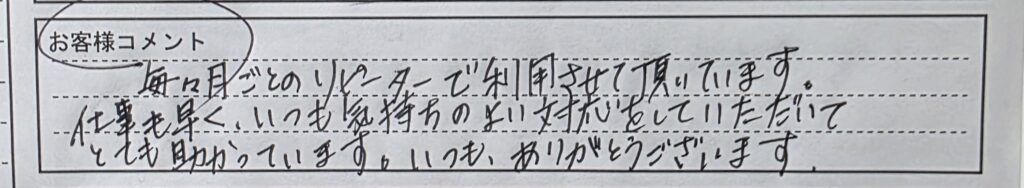 お客様コメント
毎々月ごとのリピーターで利用させて頂いています。
仕事も早く、いつも気持ちのよい対応をしていただいて
とても助かっています。いつも、ありがとうございます.